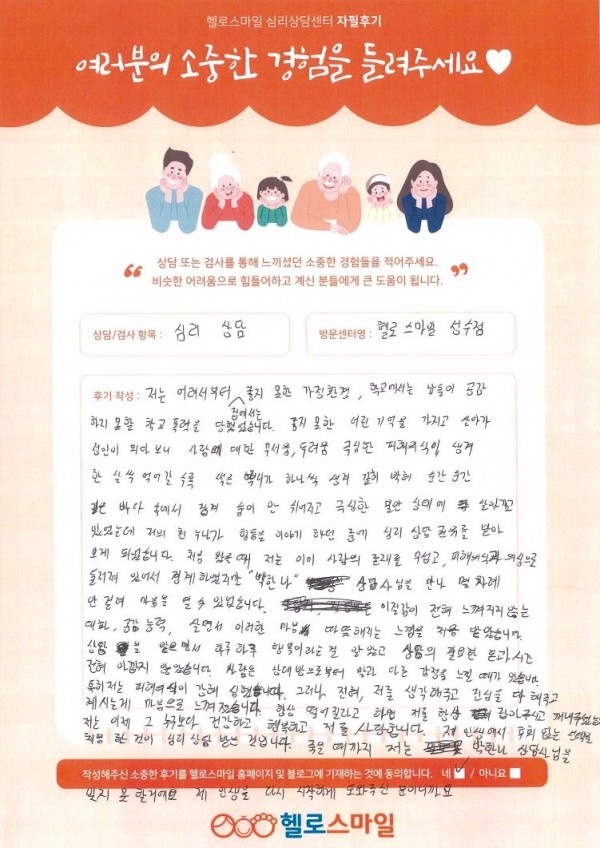 헬로스마일 심리상담센터 자필후기
여러분의 소중한 경험을 들려주세요♥
상담 또는 검사를 통해 느끼셨던 소중한 경험들을 적어주세요.
비슷한 어려움으로 힘들어하고 계신 분들에게 큰 도움이 됩니다.
상담/검사 항목 : 심리 상담
방문센터명 : 헬로 스마일 성수점
후기 작성 : 저는 어려서부터 좋지 못한 가정환경, 학교에서는 남들이 공감
집에서는
하지 못할 학교 폭력을 당했었습니다. 좋지 못한 어린 기억을 가지고 살아가
성인이 되다 보니 사람에 대한 무서움, 두려움 극심한 피해의식이 생겨
한 살씩 먹어갈 수록 썩은 하나씩 생겨 박혀 순간 순간
깊은 바다 속에서 잠겨 숨이 안 쉬어지고 극심한 불안 상태에 살아가고
있었는데 저의 친 누나가 힘듦을 이야기 하던 중에 심리 상담 권유를 받아
오게 되었습니다. 처음 왔을 때 저는 이미 사람의 존재를 무섭고, 피해의식과 의심으로
둘러져 있어서 경계 하였지만 "박한나" 상담사님을 만나 몇 차례
안 걸려 마음을 열 수 있었습니다. 이질감이 전혀 느껴지지 않는
대화, 공감 능력, 살면서 이러한 마음 따뜻해지는 느낌을 처음 받았습니다.
상담을 받으면서 하루하루 행복이라는 걸 알았고 상담의 필요한 돈과 시간
전혀 아깝지 않았습니다. 사람은 상대방으로부터 말과 다른 감정을 느낄 때가 있습니다.
특히 저는 피해의식이 강해 심했습니다. 그러나 전혀, 저를 생각해주고 진심을 다 해주고
계시는게 마음으로 느껴졌습니다. 항상 떨어질라고 하면 저를 항상 잡아주시고 꺼내주셨는
저는 이제 그 누구보다 건강하고 행복하고 저를 사랑합니다. 인생에서 후회 없는 선택을
처음 한 것이 심리 상담 받은 것입니다. 죽을 때까지 저는 박한나 상담사님을
작성해주신 소중한 후기를 헬로스마일 홈페이지 및 블로그에 기재하는 것에 동의합니다. 네 / 아니요
잊지 못 할거예요 제 인생을 다시 시작하게 도와주신 분이니까요
헬로스마일